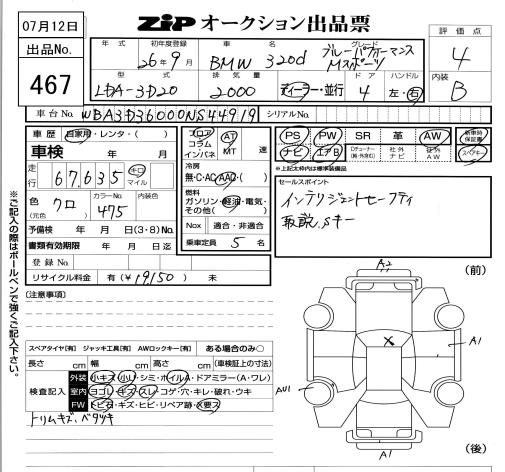 07月12日
出品No.
467
ZIP オークション出品票
評価点
4
内装
B
年式 初年度登録 車名 グレード
26年9月 BMW 320d ブルーパフォーマンス
Mスポーツ
型式 排気量 ドア ハンドル
LDA-3D20 2000 ディーラー・並行 4 左・右
車台No. WBA3D36000NS44919 シリアルNo.
車歴 自家用・レンタ・( )
車検 年 月
走行 67,635 キロ マイル
色(元色) クロ カラーNo. 475 内装色
予備検 年 月 日(3・8)No.
書類有効期限 年 月 日迄
登録No.
リサイクル料金 有(¥19,150) 未
フロア
コラム
インパネ
AT
MT 速
冷房
無・C・AC・AAC・( )
燃料
ガソリン・軽油・電気・
その他( )
Nox 適合・非適合
乗車定員 5 名
PS PW SR 革 AW 新車時保証書
ナビ エアB Dチューナー(純・外含む) 社外ナビ 社外AW スペアキー
※上記太枠内は標準装備品
セールスポイント
インテリジェントセーフティ
取説、Sキー
※ご記入の際はボールペンで強くご記入下さい。
(注意事項)
スペアタイヤ[有] ジャッキ工具[有] AWロックキー[有] ある場合のみ○
長さ cm 幅 cm 高さ cm (車検証上の寸法)
検査記入
外装 小キズ・小U・シミ・ホイルA・ドアミラー(A・ワレ)
室内 ヨゴレ・キズ・スレ・コゲ・穴・キレ・破れ・ウキ
FW トビ石・キズ・ヒビ・リペア跡・X要ス
トリムキズ、ベタツキ
(前)
A2
X
A1
AU1
A1
(後)